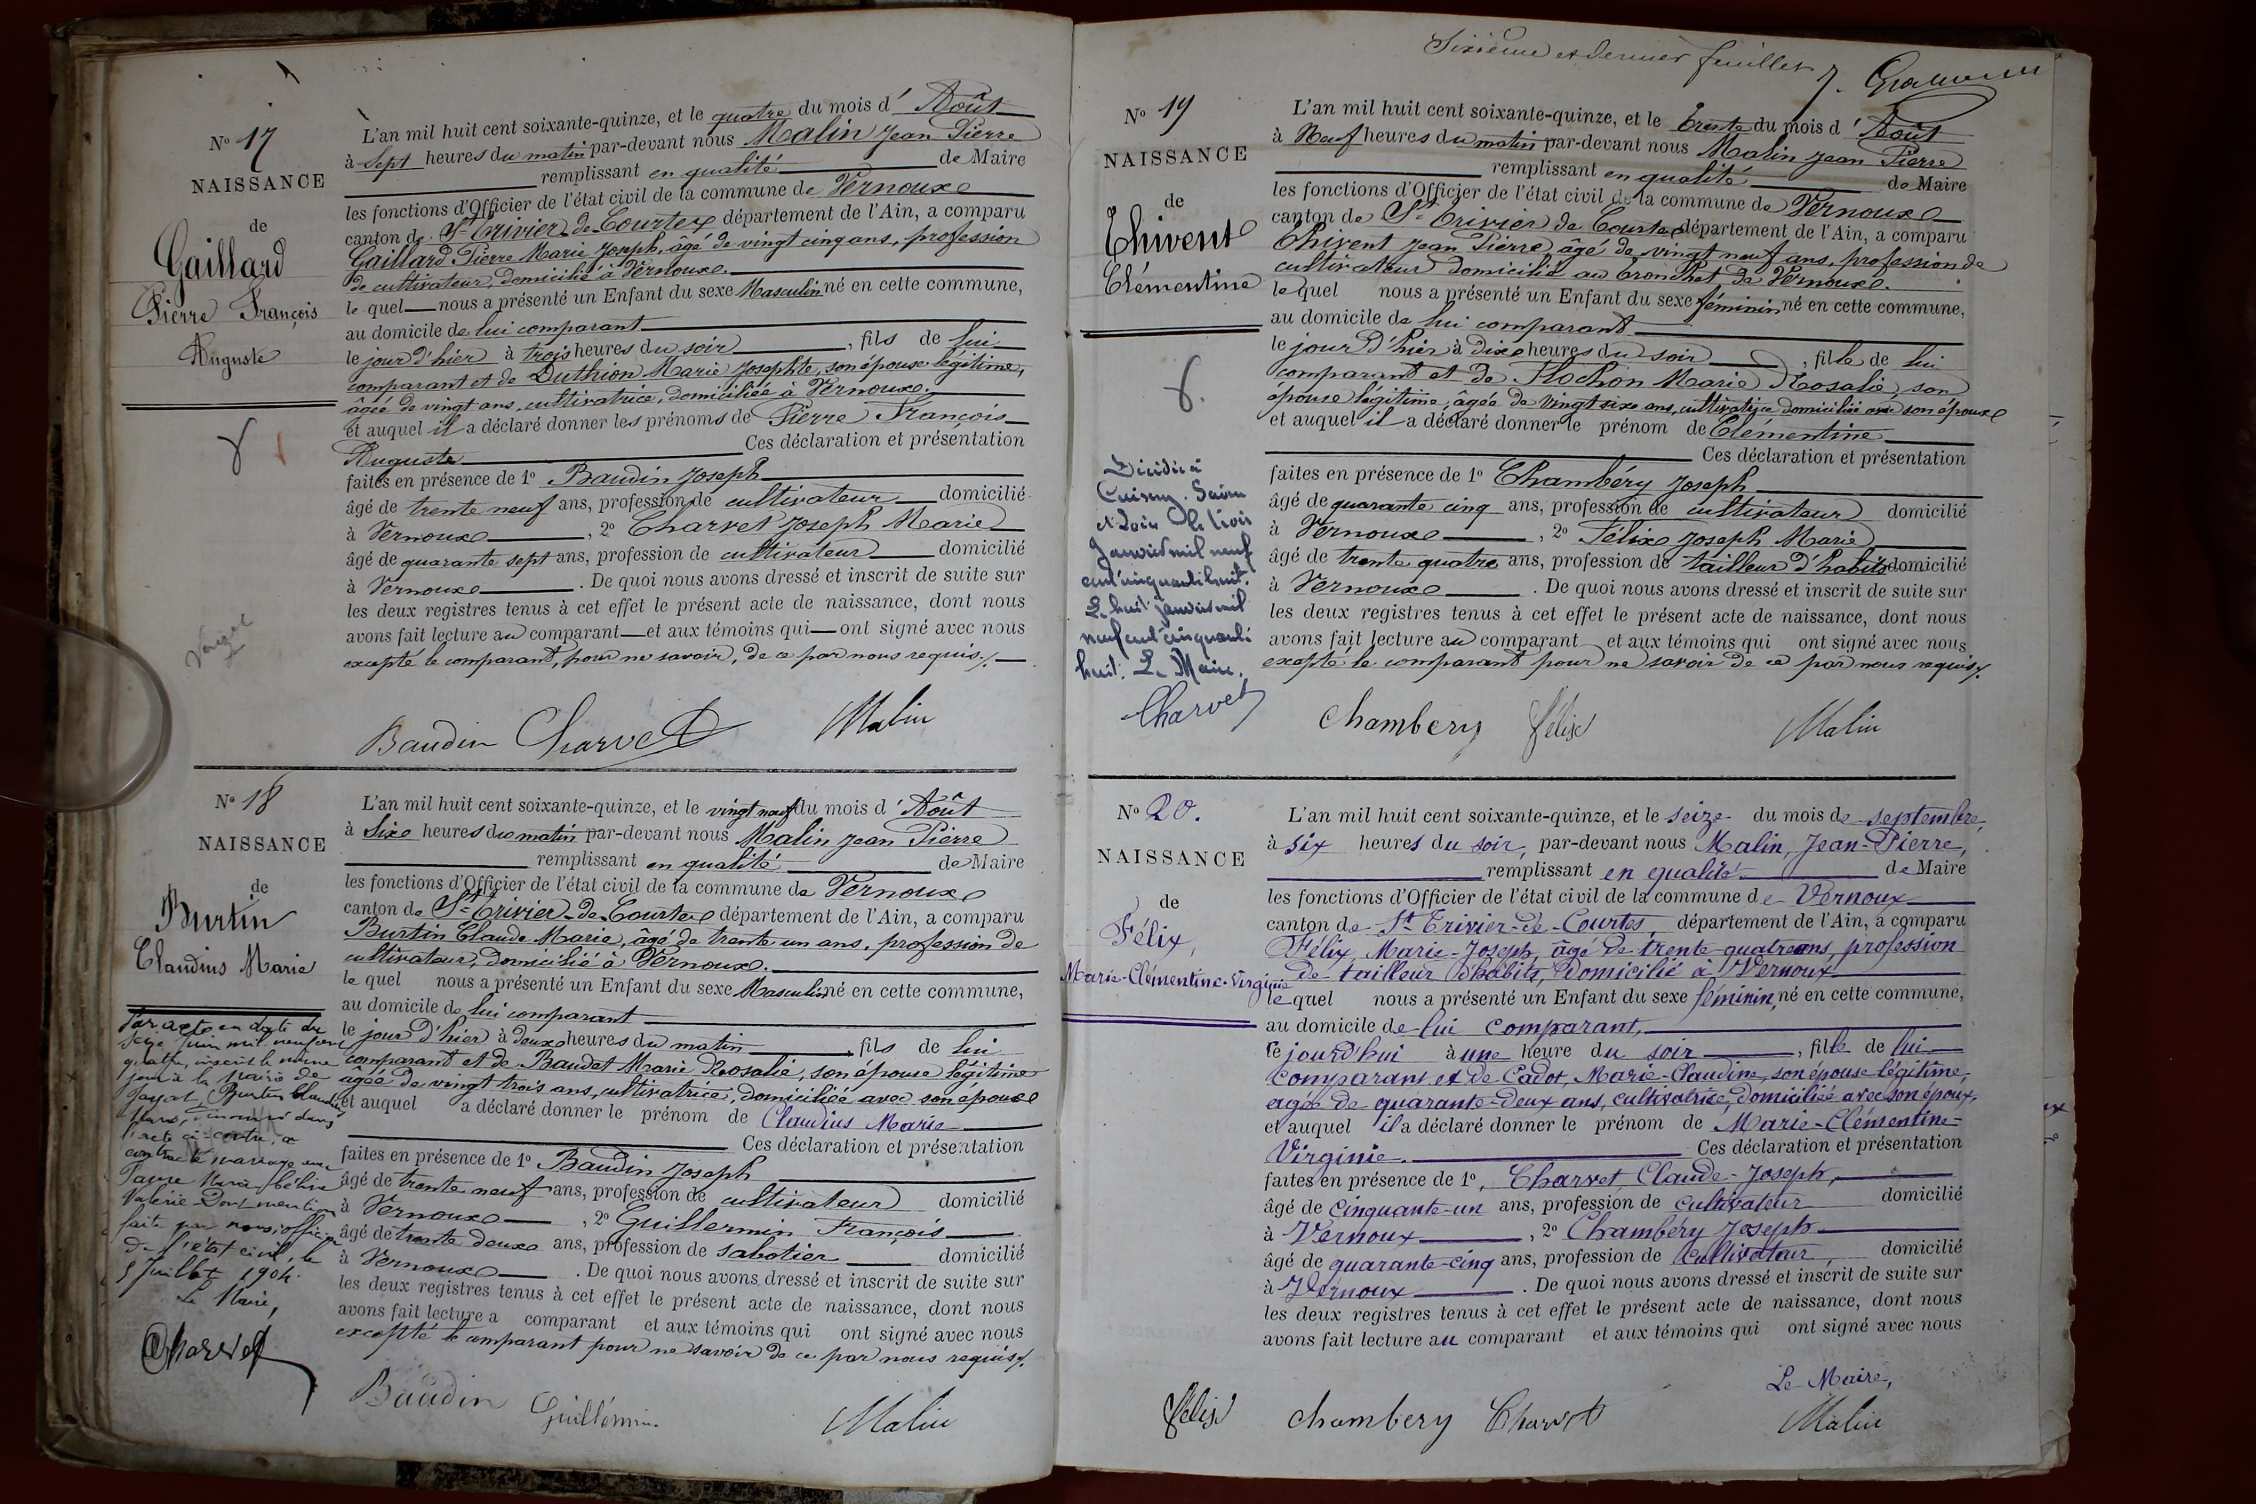 N° 17
NAISSANCE
de
Gaillard
Pierre François
Auguste
L'an mil huit cent soixante-quinze, et le quatre du mois d' Août
à sept heures du matin par-devant nous Malin Jean Pierre
remplissant en qualité de Maire
les fonctions d'Officier de l'état civil de la commune de Vernoux
canton de St Trivier de Courtex département de l'Ain, a comparu
Gaillard Pierre Marie Joseph, âgé de vingt cinq ans, profession
de cultivateur, domicilié à Vernoux.
le quel nous a présenté un Enfant du sexe Masculin né en cette commune,
au domicile de lui comparant
le jour d'hier à trois heures du soir, fils de lui
comparant et de Duthion Marie Josephte, son épouse légitime,
âgée de vingt ans, cultivatrice, domiciliée à Vernoux.
et auquel il a déclaré donner les prénoms de Pierre François
Auguste Ces déclaration et présentation
faites en présence de 1° Baudin Joseph
âgé de trente neuf ans, profession de cultivateur domicilié
à Vernoux, 2° Charvet Joseph Marie
âgé de quarante sept ans, profession de cultivateur domicilié
à Vernoux. De quoi nous avons dressé et inscrit de suite sur
les deux registres tenus à cet effet le présent acte de naissance, dont nous
avons fait lecture au comparant et aux témoins qui ont signé avec nous
excepté le comparant, pour ne savoir, de ce par nous requis.
Baudin Charvet Malin
N° 18
NAISSANCE
de
Burtin
Claudius Marie
Par acte en date du
seize Juin mil neuf cent
quatre, inscrit le même
jour à la mairie de
Jayat, Burtin Claudius
Marie, dénommé dans
l'acte ci-contre, a
contracté mariage avec
Marie
Valérie Dont mention
faite par nous, officier
de l'état civil, le
5 Juillet 1904.
Le Maire,
Charvet
L'an mil huit cent soixante-quinze, et le vingt neuf du mois d' Août
à Six heures du matin par-devant nous Malin Jean Pierre
remplissant en qualité de Maire
les fonctions d'Officier de l'état civil de la commune de Vernoux
canton de St Trivier de Courtes département de l'Ain, a comparu
Burtin Claude Marie, âgé de trente un ans, profession de
cultivateur, domicilié à Vernoux.
le quel nous a présenté un Enfant du sexe Masculin né en cette commune,
au domicile de lui comparant
le jour d'hier à deux heures du matin, fils de lui
comparant et de Baudet Marie Rosalie, son épouse légitime
âgée de vingt trois ans, cultivatrice, domiciliée avec son époux
et auquel a déclaré donner le prénom de Claudius Marie
Ces déclaration et présentation
faites en présence de 1° Baudin Joseph
âgé de trente neuf ans, profession de cultivateur domicilié
à Vernoux, 2° Guillermin François
âgé de trente deux ans, profession de sabotier domicilié
à Vernoux. De quoi nous avons dressé et inscrit de suite sur
les deux registres tenus à cet effet le présent acte de naissance, dont nous
avons fait lecture a comparant et aux témoins qui ont signé avec nous
excepté le comparant pour ne savoir de ce par nous requis.
Baudin Guillermin Malin
Sixième et dernier feuillet
N° 19
NAISSANCE
de
Thivent
Clémentine
Décédée à
Cuisery. Saône
et Loire le trois
Janvier mil neuf
cent cinquante huit.
Le huit janvier mil
neuf cent cinquante
huit. Le Maire,
Charvet
L'an mil huit cent soixante-quinze, et le trente du mois d' Août
à Neuf heures du matin par-devant nous Malin Jean Pierre
remplissant en qualité de Maire
les fonctions d'Officier de l'état civil de la commune de Vernoux
canton de St Trivier de Courtes département de l'Ain, a comparu
Thivent Jean Pierre âgé de vingt neuf ans, profession de
cultivateur domicilié au tronchet de Vernoux.
le quel nous a présenté un Enfant du sexe féminin né en cette commune,
au domicile de lui comparant
le jour d'hier à dix heures du soir, fille de lui
comparant et de Flochon Marie Rosalie, son
épouse légitime, âgée de vingt six ans, cultivatrice domiciliée avec son époux
et auquel il a déclaré donner le prénom de Clémentine
Ces déclaration et présentation
faites en présence de 1° Chambéry Joseph
âgé de quarante cinq ans, profession de cultivateur domicilié
à Vernoux, 2° Félix Joseph Marie
âgé de trente quatre ans, profession de tailleur d'habits domicilié
à Vernoux. De quoi nous avons dressé et inscrit de suite sur
les deux registres tenus à cet effet le présent acte de naissance, dont nous
avons fait lecture au comparant et aux témoins qui ont signé avec nous
excepté le comparant pour ne savoir de ce par nous requis.
Chambery Félix Malin
N° 20.
NAISSANCE
de
Félix,
Marie-Clémentine-Virginie
L'an mil huit cent soixante-quinze, et le seize du mois de septembre,
à six heures du soir, par-devant nous Malin, Jean-Pierre,
remplissant en qualité de Maire
les fonctions d'Officier de l'état civil de la commune de Vernoux
canton de St Trivier-de-Courtes, département de l'Ain, a comparu
Félix, Marie-Joseph, âgé de trente-quatre ans, profession
de tailleur d'habits, domicilié à Vernoux
lequel nous a présenté un Enfant du sexe féminin, né en cette commune,
au domicile de lui comparant,
le jourd'hui à une heure du soir, fille de lui
comparant et de Cadot, Marie-Claudine, son épouse légitime,
agée de quarante-deux ans, cultivatrice, domiciliée avec son époux,
et auquel il a déclaré donner le prénom de Marie-Clémentine-
Virginie. Ces déclaration et présentation
faites en présence de 1°, Charvet Claude-Joseph,
âgé de cinquante-un ans, profession de cultivateur domicilié
à Vernoux, 2° Chambéry Joseph
âgé de quarante-cinq ans, profession de cultivateur domicilié
à Vernoux. De quoi nous avons dressé et inscrit de suite sur
les deux registres tenus à cet effet le présent acte de naissance, dont nous
avons fait lecture au comparant et aux témoins qui ont signé avec nous
Le Maire,
Félix Chambery Charvet Malin